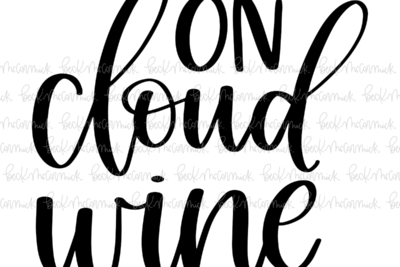 ON
cloud
wine